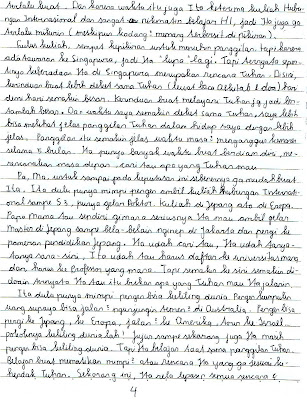 terlalu kuat. Dan karna waktu itu juga Ita keterima kuliah Hubu-
ngan Internasional dan sangat2 nikmatin belajar HI, jadi Ita juga ga
terlalu mikirin (meskipun kadang2 memang terbersit di pikiran).
Lulus kuliah, sempat kepikiran untuk menuhin panggilan tapi karena
ada tawaran ke Singapura, jadi Ita 'lupa' lagi. Tapi ternyata spe-
nya keberadaan Ita di Singapura merupakan rencana Tuhan. Disini,
kerinduan buat lebih dekat sama Tuhan (lewat baca Alkitab & doa) hari
demi hari semakin besar. Kerinduan buat melayani Tuhan jg jadi ber-
tambah besar. Dan waktu saya semakin dekat sama Tuhan, saya lebih
bisa melihat jelas panggilan Tuhan dalam hidup saya dengan lebih
jelas. Panggilan itu semakin jelas waktu masa2 menganggur kemarin
selama 5 bulan. Ita punya banyak waktu buat berdiam diri, me-
rencanakan masa depan, cari tau apa yang Tuhan mau.
Pa, Ma, untuk sampai pada keputusan ini sebenernya ga mudah buat
Ita. Ita dulu punya mimpi pengen ambil kuliah Hubungan Internasi-
onal sampe S3, punya gelar Doktor. Kuliah di Jepang ato di Eropa.
Papa Mama tau sendiri gimana seriusnya Ita mau ambil gelar
Master di Jepang sampe bela-belain nginep di Jakarta dan pergi ke
pameran pendidikan Jepang. Ita udah cari tau, Ita udah tanya-
tanya sana-sini, Ita udah tau harus daftar ke universitas mana
dan harus ke Profesor yang mana. Tapi semakin ke sini semakin di-
doain ternyata Ita tau itu bukan apa yang Tuhan mau Ita jalanin.
Ita dulu punya mimpi pengen bisa keliling dunia. Pengen ngumpulin
uang supaya bisa jalan2 ngunjungin temen2 di Australia. Pengen bisa
pergi ke Jepang, ke Eropa, jalan2 ke Amerika, tour ke Israel,
pokoknya keliling dunia lah! Jujur sampe sekarang juga Ita masih
pengen bisa keliling dunia. Tapi Ita belajar taat sama panggilan Tuhan.
Belajar buat mematikan mimpi2 atau rencana Ita yang ga sesuai ke-
hendak Tuhan. Sekarang ini, Ita rela lepasin semua rencana &
4